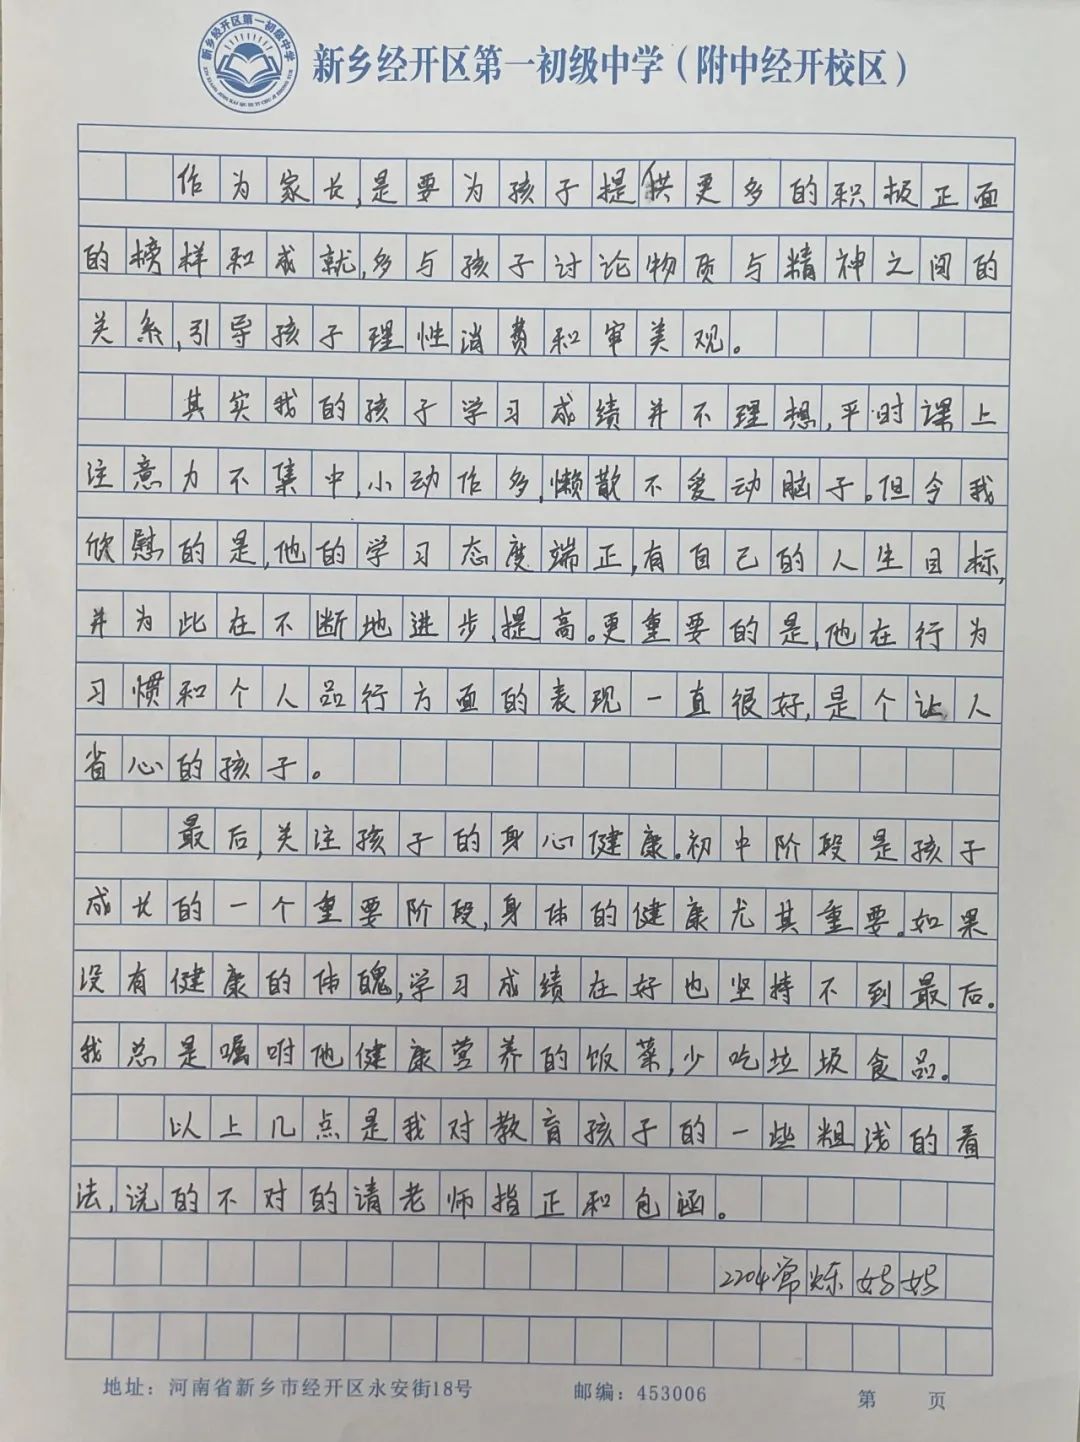 新乡经开区第一初级中学
新乡经开区第一初级中学（附中经开校区）
作为家长,是要为孩子提供更多的积极正面
的榜样和成就,多与孩子讨论物质与精神之间的
关系,引导孩子理性消费和审美观。
其实我的孩子学习成绩并不理想,平时课上
注意力不集中,小动作多,懒散不爱动脑子。但令我
欣慰的是,他的学习态度端正,有自己的人生目标,
并为此在不断地进步,提高。更重要的是,他在行为
习惯和个人品行方面的表现一直很好,是个让人
省心的孩子。
最后,关注孩子的身心健康.初中阶段是孩子
成长的一个重要阶段,身体的健康尤其重要.如果
没有健康的体魄,学习成绩在好也坚持不到最后.
我总是嘱咐他健康营养的饭菜,少吃垃圾食品.
以上几点是我对教育孩子的一些粗浅的看
法,说的不对的请老师指正和包涵。
2204常烁妈妈
地址：河南省新乡市经开区永安街18号 邮编：453006 第 页